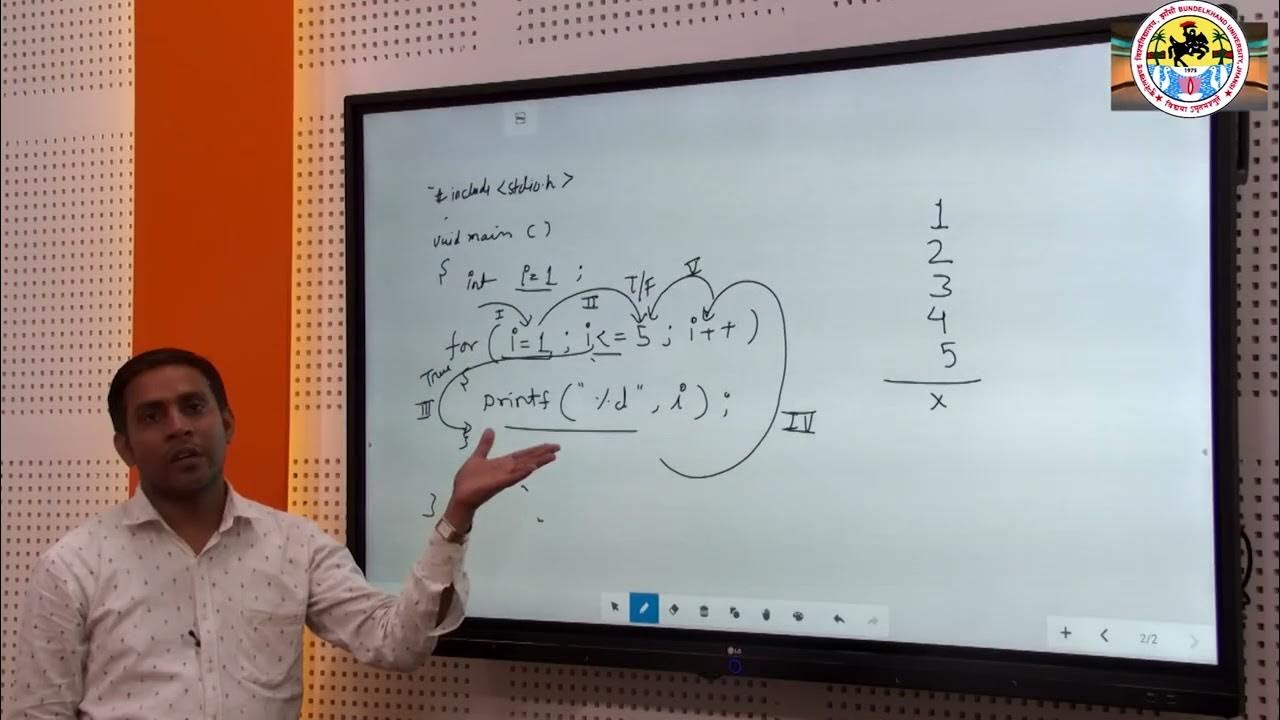 #include <stdio.h>
void main ()
{ int i=1 ;
I II T/F V
for ( i=1 ; i<= 5 ; i++ )
True {
III printf ( "%d" , i ) ;
}
IV
}
1
2
3
4
5
x
2/2
LG
BUNDELKHAND UNIVERSITY, JHANSI
बुन्देलखण्ड विश्वविद्यालय, झाँसी
1975